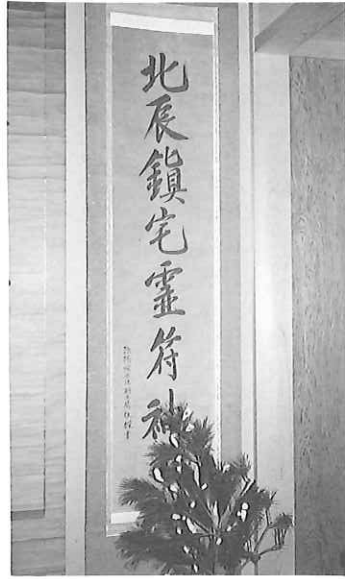 北辰鎮宅霊符神